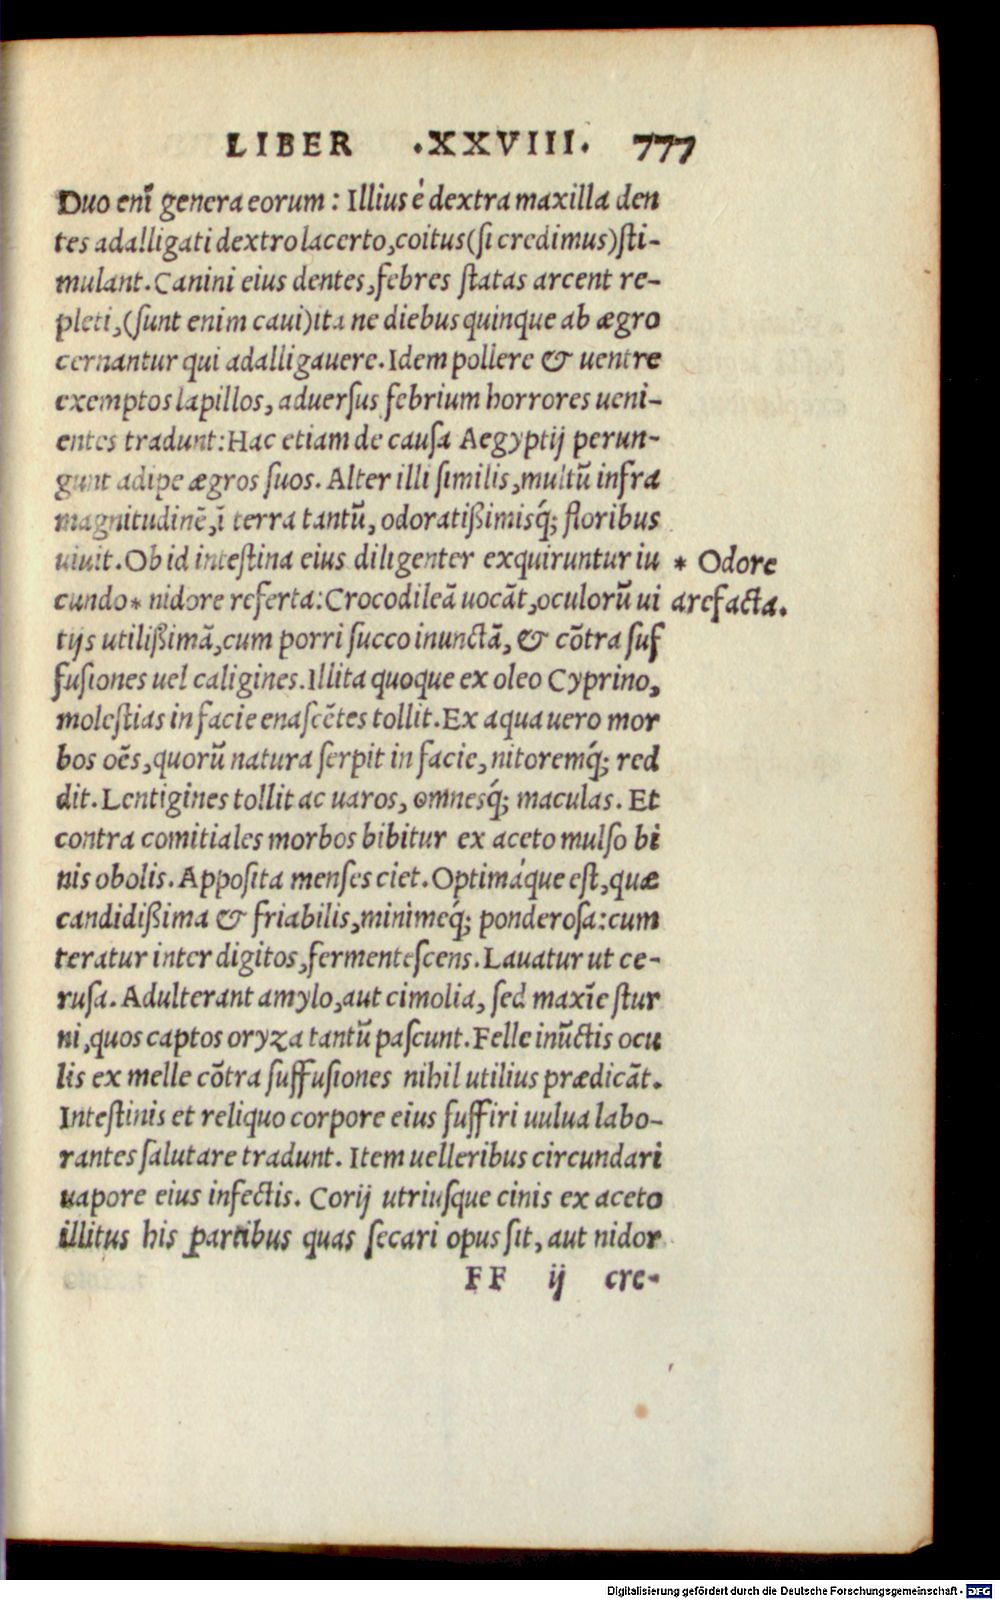 LIBER .XXVIII. 777
Duo enĩ genera eorum : Illius è dextra maxilla den
tes adalligati dextro lacerto, coitus (ſi credimus) ſti-
mulant. Canini eius dentes, febres ſtatas arcent re-
pleti, (ſunt enim caui) ita ne diebus quinque ab ægro
cernantur qui adalligauere. Idem pollere & uentre
exemptos lapillos, aduerſus febrium horrores ueni-
entes tradunt: Hac etiam de cauſa Aegyptij perun-
gunt adipe ægros ſuos. Alter illi ſimilis, multũ infra
magnitudinẽ, ĩ terra tantũ, odoratißimisq́; floribus
uiuit. Ob id inteſtina eius diligenter exquiruntur iu
cundo* nidore referta: Crocodileã uocãt, oculorũ ui
tijs utilißimã, cum porri ſucco inunctã, & cõtra ſuf
fuſiones uel caligines. Illita quoque ex oleo Cyprino,
moleſtias in facie enaſcẽtes tollit. Ex aqua uero mor
bos oẽs, quorũ natura ſerpit in facie, nitoremq́; red
dit. Lentigines tollit ac uaros, omnesq́; maculas. Et
contra comitiales morbos bibitur ex aceto mulſo bi
nis obolis. Appoſita menſes ciet. Optimáque eſt, quæ
candidißima & friabilis, minimeq́; ponderoſa: cum
teratur inter digitos, fermenteſcens. Lauatur ut ce-
ruſa. Adulterant amylo, aut cimolia, ſed maxĩe ſtur
ni, quos captos oryza tantũ paſcunt. Felle inũctis ocu
lis ex melle cõtra ſuffuſiones nihil utilius prædicãt.
Inteſtinis et reliquo corpore eius ſuffiri uulua labo-
rantes ſalutare tradunt. Item uelleribus circundari
uapore eius infectis. Corij utriuſque cinis ex aceto
illitus his partibus quas ſecari opus ſit, aut nidor
FF ij cre-
* Odore
arefacta.
Digitalisierung gefördert durch die Deutsche Forschungsgemeinschaft - DFG